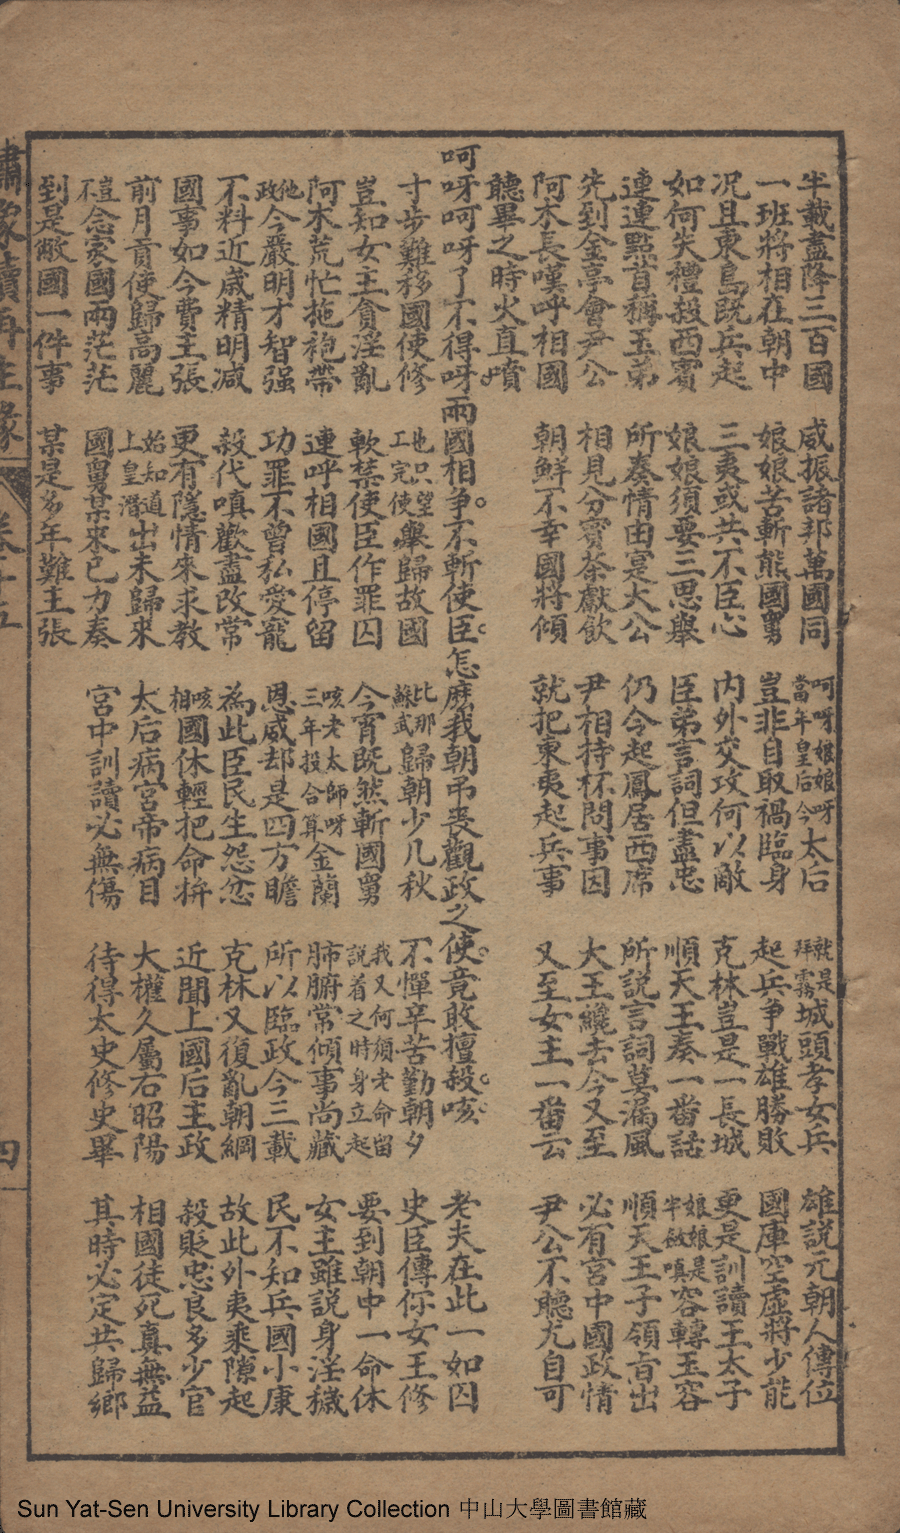 半載盡降三百國　威振諸邦萬國同　呵呀娘娘呀當年皇后今太后　就是拜霧城頭孝女兵　雄說元朝人傳位
一班將相在朝中　娘娘苦斬熊國舅　豈非自取禍臨身　起兵爭戰雄勝敗　國庫空虛將少能
况且東鳥既兵起　三夷或共不臣心　內外交攻何以敵　克林豈是一長城　更是訓讀王太子
如何失禮殺西賓　娘娘須要三思舉　臣弟言詞但盡忠　順天王奏一番話　娘娘是半做嗔容轉玉容
連連點首稱玉弟　所奏情由寔大公　仍令起鳳居西席　所說言詞莫漏風　順天王子領旨出
先到金亭會尹公　相見分賓茶獻飲　尹相持杯問事因　大王纔去今又至　必有宮中國政情
阿木長嘆呼相國　朝鮮不幸國將傾　就把東夷起兵事　又至女主一番云　尹公不聽尤自可
聽畢之時火直噴
呵呀呵呀了不得呀。兩國相爭。不斬使臣。怎麽我朝弔喪觀政之使。竟敢擅殺。咳。老夫在此一如囚
寸步難移國使修　也只望工完使舉歸故國　比那蘇武歸朝少几秋　不憚辛苦勤朝夕　史臣傳你女王修
豈知女主貪淫亂　軟禁使臣作罪囚　今宵既然斬國舅　我又何須老命留說着之時身立起　要到朝中一命休
阿木荒忙拖袍帶　連呼相國且停留　咳老太師呀三年投合算金蘭　肺腑常傾事尚藏　女主雖說身淫穢
他政今嚴明才智强　功罪不曾私愛寵　恩威却是四方瞻　所以臨政今三載　民不知兵國小康
不料近歲精明减　殺代嗔歡盡改常　為此臣民生怨忿　克林又復亂朝綱　故此外夷乘隙起
國事如今費主張　更有隱情來求教　咳相國休輕把命拚　近聞上國后主政　殺貶忠良多少官
前月貢使歸高麗　始知道上皇潛出未歸來　太后病宮帝病目　大權久屬右昭陽　相國徒死真無益
豈不念家國兩茫茫　國舅某來已力奏　宮中訓讀必無傷　待得太史修史畢　其時必定共歸鄉
到是敝國一件事　某是多年難主張
繡像續再生緣　卷十五　四
Sun Yat-Sen University Library Collection 中山大學圖書館藏